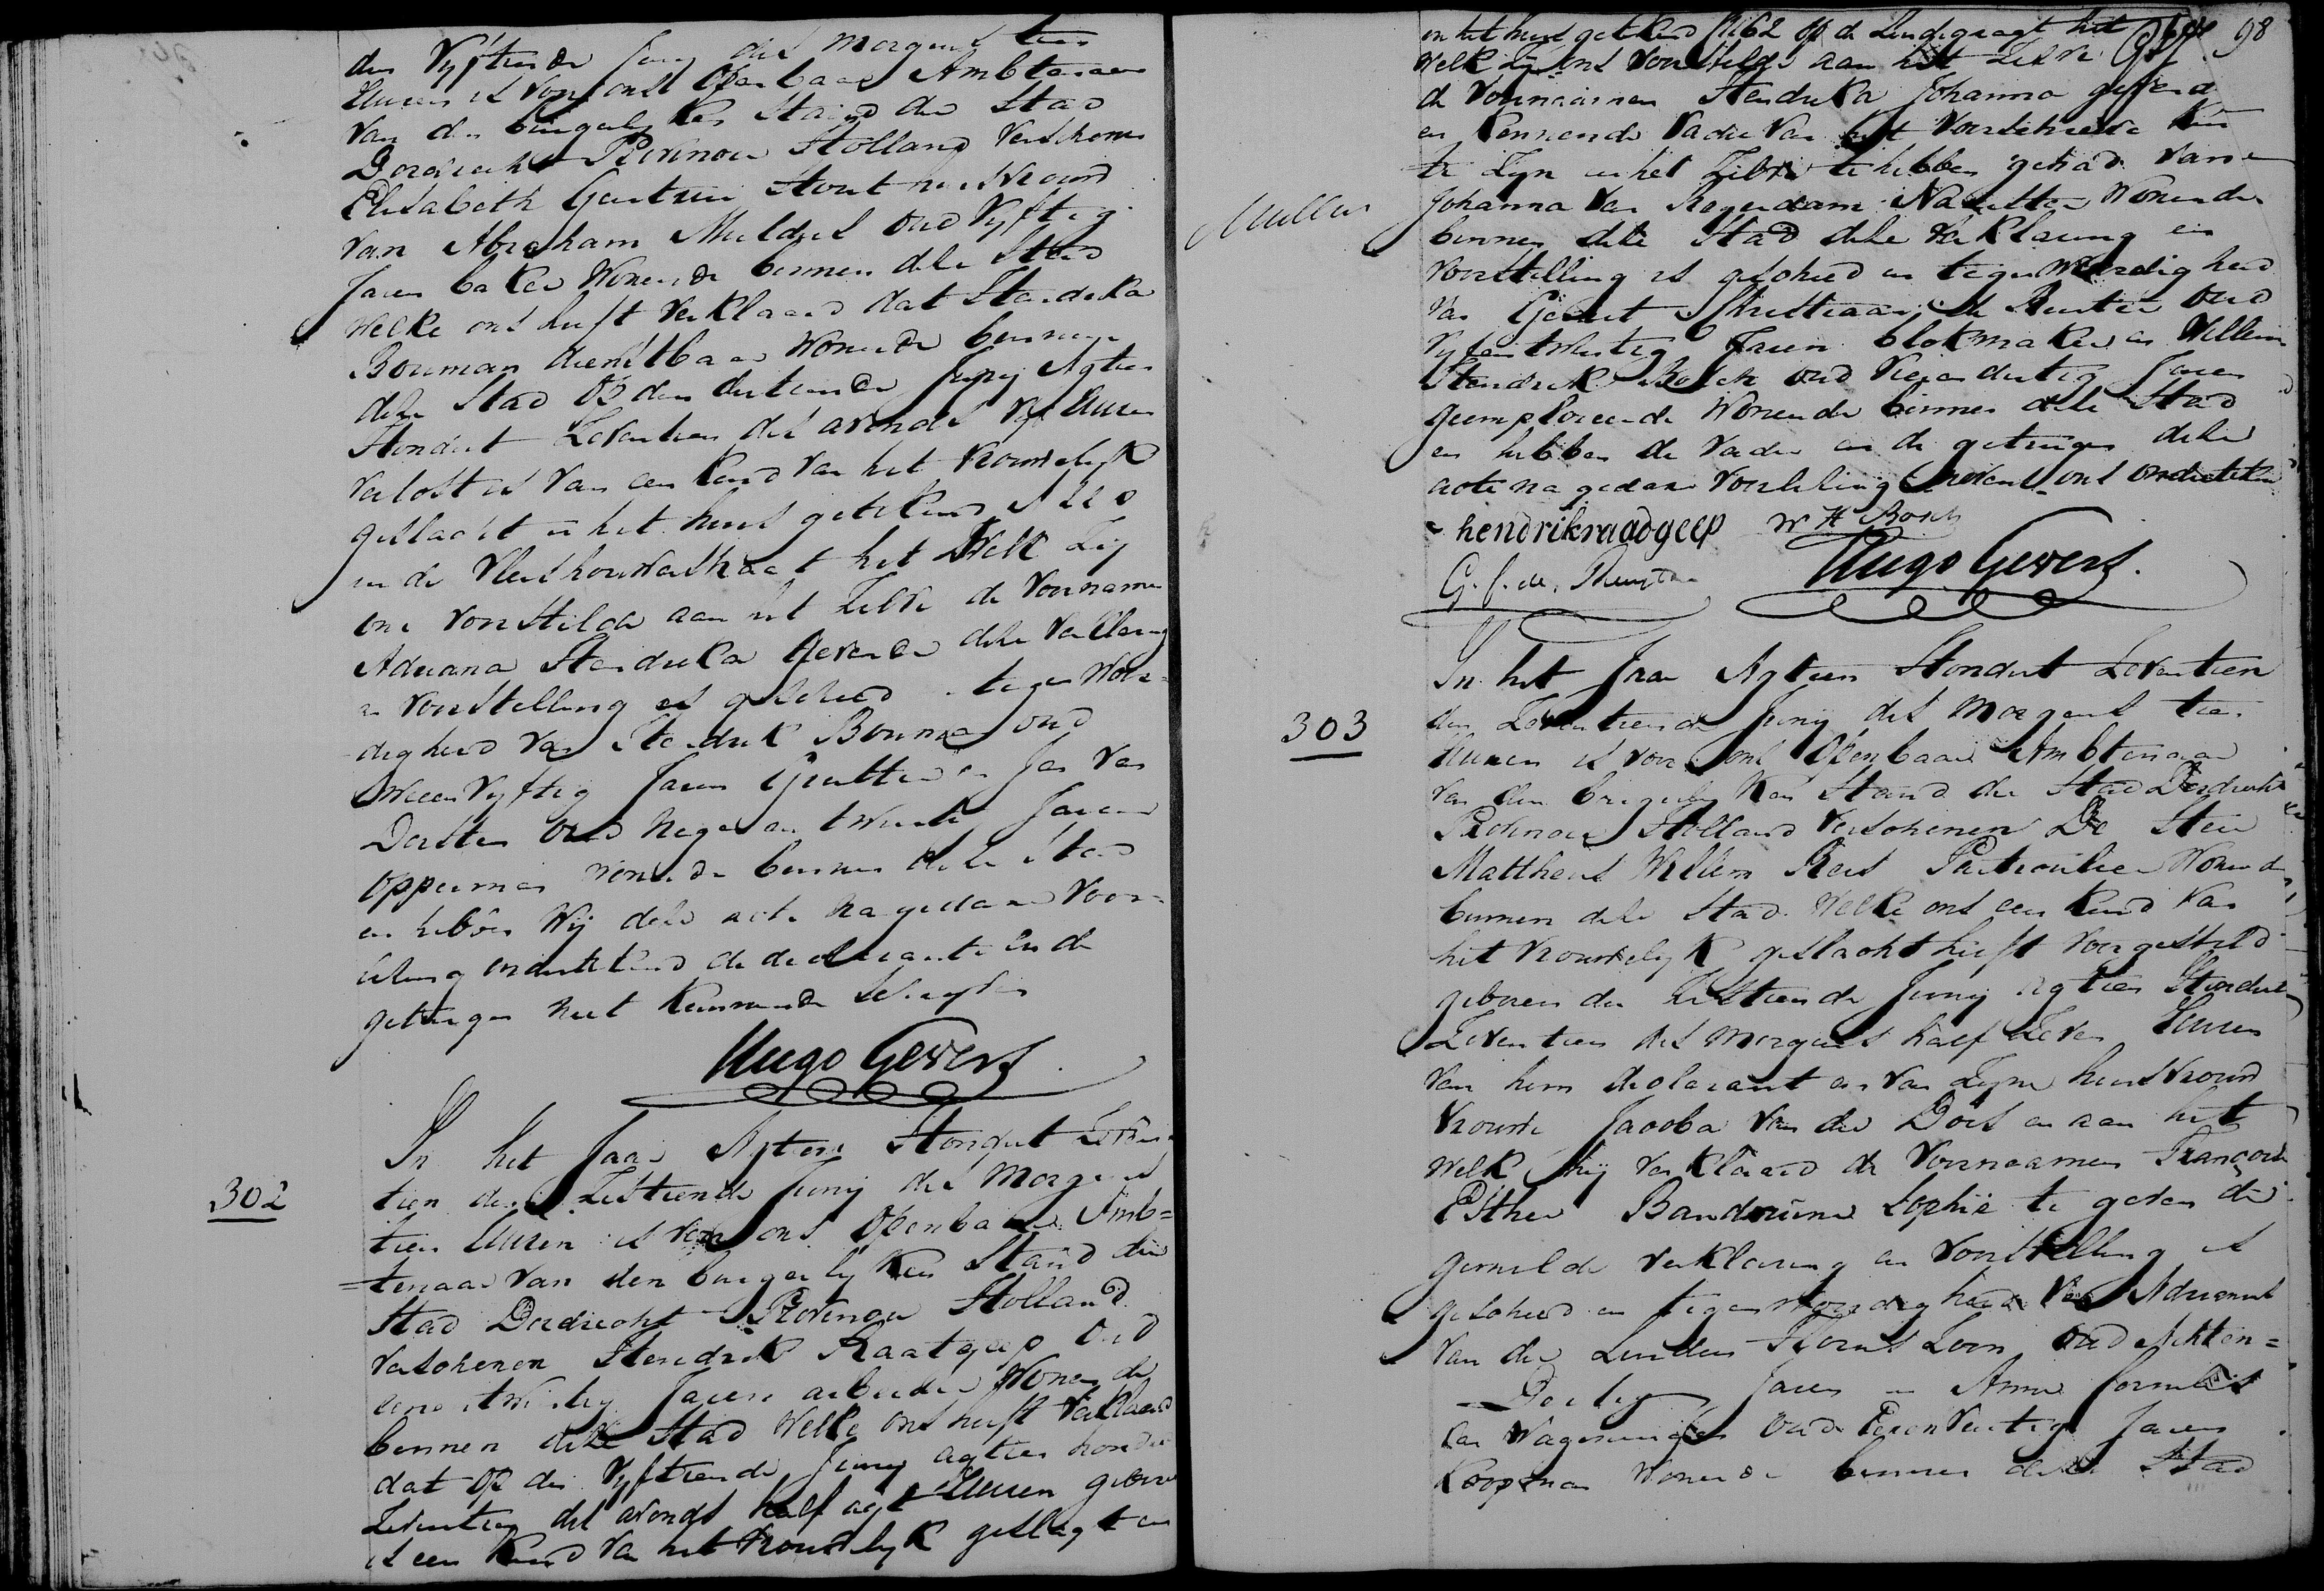 den Vyftiende Juny des morgens tien
Uuren is voor ons Openbaar Ambtenaar
Van den burgerlyken Stand der Stad
Dordrecht Provincie Holland Verschenen
Elisabeth Geertrui Hout huisvrouw
Van Abraham Mulders oud Vyftig
Jaren baker Wonende binnen deze Stad
Welke ons heeft verklaard dat Hendrika
Bouman dienstbaar Wonende binnen
deze Stad op den dertiende Juny Agtien
Hondert Zeventien des avonds Vyf Uuren
Verlost is Van een Kind Van het Vrouwelyk
geslacht in het huis getekend
in de Vleeshouwerstraat het Welk Zy
ons Voorstelde aan het Zelve de Voornamen
Adriana Hendrika Gevende deze Verklaring
en Voorstelling is geschied in tegenwoor=
digheid Van Hendrik Bouman oud
Tweeenvyftig Jaren en Jan Van
Dorsten Oud Negen en twintig Jaaren
opperman wonende binnen deze Stad
en hebben Wy deze acte na gedaane Voor=
lezing ondertekend de declarante en de
getuigen niet Kunnende Schryven
Hugo Gevers
302
In het Jaar Agtien Hondert Zeven
tien den Zestiende Juny des Morgens
tien Uuren is voor ons Openbaar Amb=
=tenaar Van den burgerlyken Stand der
Stad Dordrecht Provincie Holland
Verschenen Hendrik Raatgeep Oud
eenentwintig Jaren arbeider Wonende
binnen deze Stad Welke ons heeft Verklaard
dat op den Vyftiende Juny agtien honder
Zeventien des avonds half agt Uuren geboren
is een Kind Van het Vrouwelyk geslagt en
98
in het huis getekend N 62 op de Lindegragt het
Welk Zy ons Voorstelde aan het Zelve
de Voornaamen Hendrika Johanna gevend
en Kennende Vader Van het Voorschreve Kind
te Zyn en het Zelve te hebben gehad Van
Johanna Van Ragendam Naaister Wonende
binnen deze Stad deze Verklaring en
Voorstelling is geschied in tegenwoordigheid
Van Gerrit Christiaan de Ruiter Oud
Vyfentwintig Jaren blokmaker en Willem
Hendrik Bosch oud Vierendertig Jaren
geemploieerde Wonende binnen deze Stad
en hebben de Vader en de getuigen deze
acte na gedane Voorlezing nevens ons ondertekend
hendrikraadgeep W H Bosch
G. C. de Ruyter Hugo Gevers.
303
In het Jaar Agtien Hondert Zeventien
den Zeventiende Juny des Morgens tien
Uuren is voor ons Openbaar Ambtenaar
Van den burgerlyken Stand der Stad Dordrecht
Provincie Holland Verschenen De Heer
Mattheus Willem Rees Particulier Wonende
binnen deze Stad Welke ons een Kind Van
het Vrouwelyk geslacht heeft Voorgesteld
geboren den Zestiende Juny Agtien Hondert
Zeventien des Morgens half Zeven Uuren
Van hem declarant en Van Zyne huisvrouw
Vrouwe Jacoba Van der Does en aan het
Welk Hy Verklaard de Voornaamen Françoise
Esther Sophie te geven de
gemelde verklaring en Voorstelling is
geschied in tegenwoordigheid Van Adrianus
Van der Linden Hornszoon Oud Achten=
Dertig Jaren en Anne Cornelis
Van Wageningen Oud Jaren
Koopman Wonende binnen deze Stad